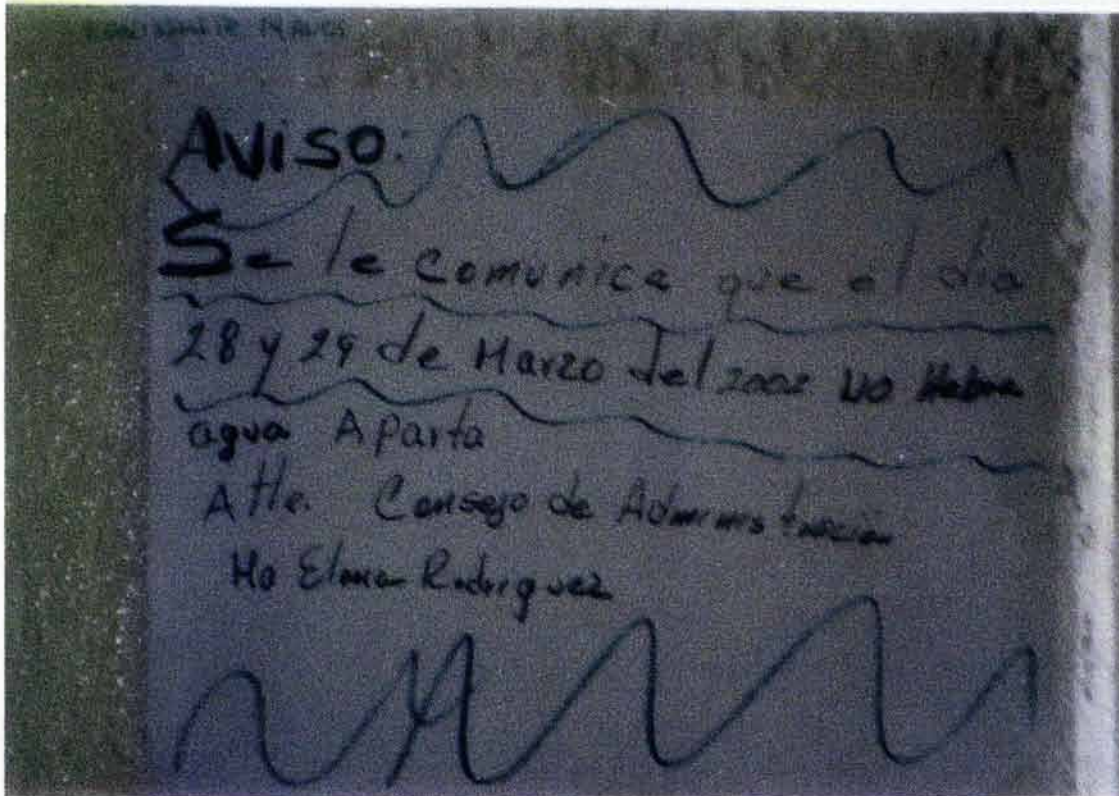 AViso:
Se le comunica que el dia
28 y 29 de Marzo del 2002 no Habra
agua Aparta
Atte. Consejo de Administración
Ma Elena Rodriguez